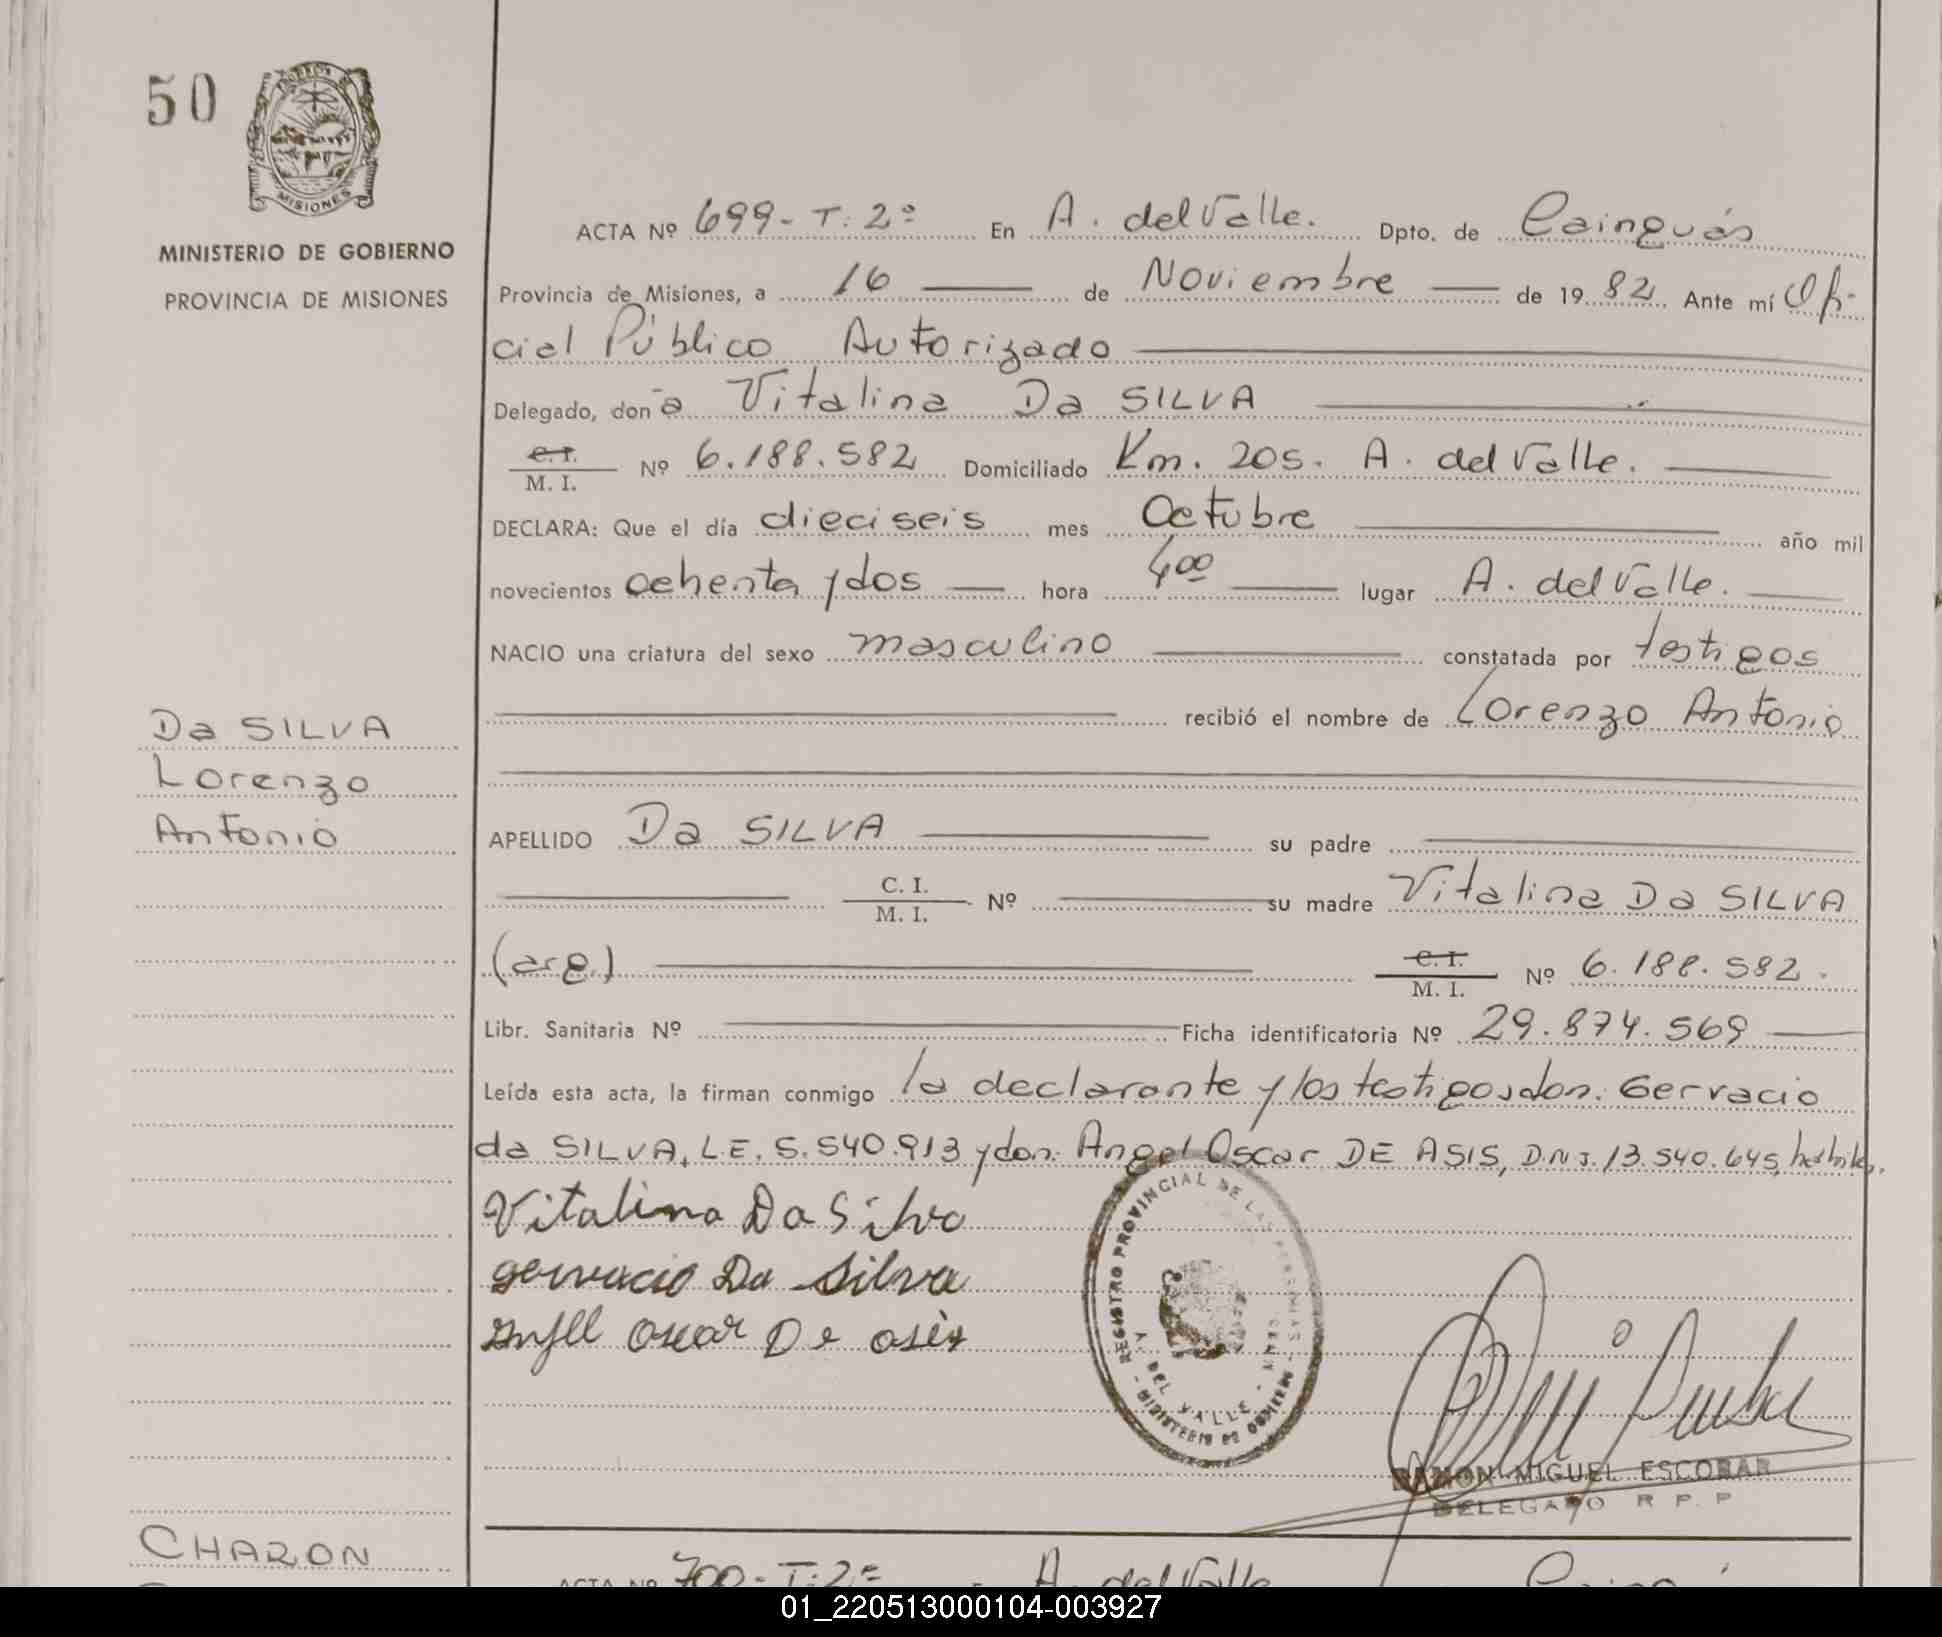 50
MISIONES
MINISTERIO DE GOBIERNO
PROVINCIA DE MISIONES
ACTA Nº 699-T:2º En A. del Valle. Dpto. de Cainguás
Provincia de Misiones, a 16 de Noviembre de 1982 Ante mí Ofi-
cial Público Autorizado
Delegado, doña Vitalina Da SILVA
C. I.
M. I. Nº 6.188.582 Domiciliado Km. 205. A. del Valle.
DECLARA: Que el día dieciseis mes Octubre año mil
novecientos ochenta y dos hora 4oo lugar A. del Valle.
NACIO una criatura del sexo masculino constatada por testigos
recibió el nombre de Lorenzo Antonio
Da SILVA
Lorenzo
Antonio
APELLIDO Da SILVA su padre
C. I.
M. I. Nº su madre Vitalina Da SILVA
(arg.) C. I.
M. I. Nº 6.188.582.
Libr. Sanitaria Nº Ficha identificatoria Nº 29.874.569
Leída esta acta, la firman conmigo la declarante y los testigos, don: Gervacio
da SILVA, L.E. 5.540.913 y don: Angel Oscar DE ASIS, D.N.I. 13.540.645,
Vitalina Da Silva
gervacio Da Silva
Oscar De asis
REGISTRO PROVINCIAL DE LAS PERSONAS
DEL VALLE
MINISTERIO DE GOBIERNO
RAMON MIGUEL ESCOBAR
DELEGADO R P. P
CHARON
ACTA Nº 700-T:2º A. del Valle
01_220513000104-003927